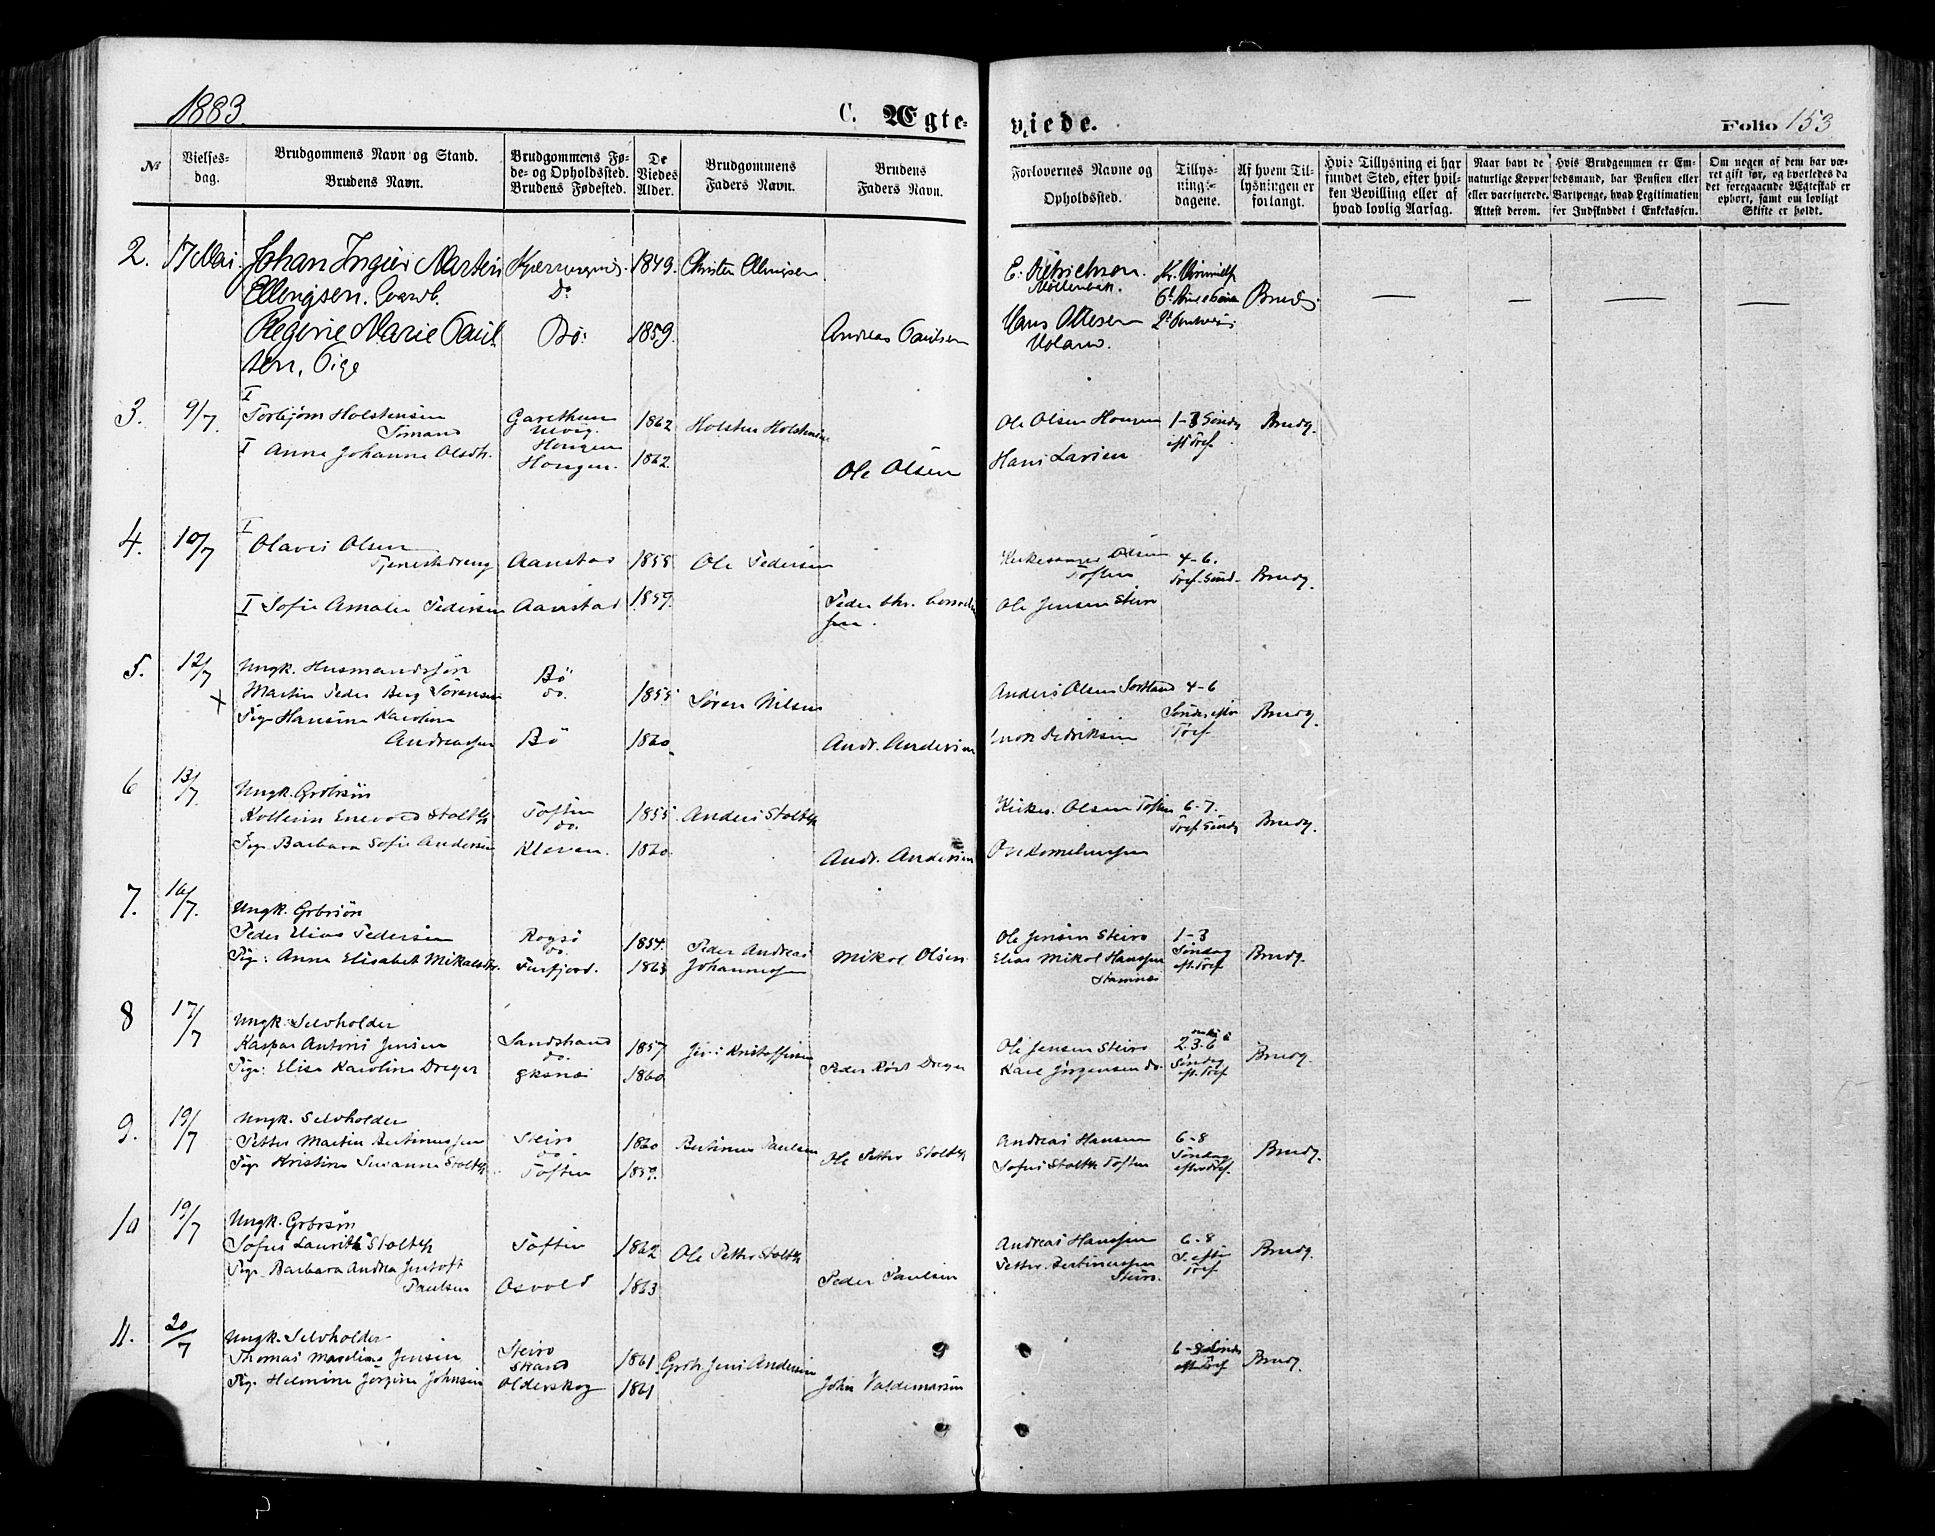 1883.
C. Ægte-
viede.
Folio 153
№
Vielses-
dag.
Brudgommens Navn og Stand.
Brudens Navn.
Brudgommens Fø-
de- og Opholdssted.
Brudens Fødested.
De
Viedes
Alder.
Brudgommens
Faders Navn.
Brudens
Faders Navn.
Forlovernes Navne og
Opholdssted.
Tillys-
nings-
dagene.
Af hvem Til-
lysningen er
forlangt.
Hvis Tillysning ei har
fundet Sted, efter hvil-
ken Bevilling eller af
hvad lovlig Aarsag.
Naar havt de
naturlige Kopper
eller vaccinerede.
Attest derom.
Hvis Brudgommen er Em-
bedsmand, har Pension eller
Vartpenge, hvad Legitimation
for Indskuddet i Enkekassen.
Om nogen af dem har væ-
ret gift før, og hvorledes da
det foregaaende Ægteskab er
ophørt, samt om lovligt
Skifte er holdt.
2. 17 Mai. Johan Ingier Marten 1849. Christen Ellingsen
Ellingsen. Do
Regine Marie Paul- Bø: 1859. Andreas Paulsen
sen, Pige
Møllenbek.
Brudg.
Hans Ottesen
Voland.
3. 9/7. I
Torbjørn Holstensen 1862 Holsten Holstensen Ole Olsen Hougen 1-3 Sønd Brudg.
eft Tref.
I Anna Johanna Olsdtr. Hougen
Hougen. 1862. Ole Olsen Hans Larsen
4. 10/7 I
Olavus Olsen
Tjenestdreng Aanstad 1855 Ole Pedersen Kirkesanger Olsen 4-6.
Toften Tref. Sønd- Brudg.
I Sofie Amalie Pedersen Aanstad 1859. Peder Chr. Corneliu-
sen. Ole Jensen Steiro
5. 12/7 Ungk. Husmandssøn Bø
Martin Peder Berg Sørensen do. 1855 Søren Nilsen Anders Olsen Sortland 4-6
Pige Hansine Karoline Sønd efter Brudg.
Andreassen Bø 1860. Andr. Andersen Enok Fedriksen Tref
6 13/7. Ungk. Grbrsøn
Enevold Stoltz Toften 1855 Anders Stoltz Kirkes. Olsen Toften 6-7.
do. Tref. Sønd Brudg.
Pige Barbara Sofie Andersen Kleven. 1860. Andr. Andersen
7. 16/7. Ungk. Grbrsøn
Peder Elias Pedersen Rogsø 1854. Peder Andreas Mikal Olsen Ole Jensen Steiro 1-3
do.
Pige: Anna Elisabet Mikalsdtr. Furfjord. 1863 Johannessen Elias Mikal Hanssen Søndag Brudg.
Stamnæs eft. Tref
8 17/7 Ungk. Selvholder
Kaspar Antoni Jensen Sandstrand 1857 Jens Kristoffersen Ole Jensen Steiro 2. 3. 6
do.
Pige: Elise Karoline Dreyer 1860 Peder Røst Dreyer Karl Jørgensen do. Søndag Brudg.
eft. Tref
9. 19/7 Ungk. Selvholder
Petter Martin Bertinussen Steiro 1860 Bertinus Paulsen Andreas Hansen 6-8
do.
Pige Kristine Susanna Stoltz Toften 1859. Ole Petter Stoltz Sofus Stoltz Toften Søndag Brudg.
efter Tref.
10 19/7 Ungk. Grbrsøn
Sofus Lauritz Stoltz Toften 1862 Ole Petter Stoltz Andreas Hanssen 6-8
Pige Barbara Andrea Jentoft Petter Bertinussen S. efter Brudg.
Paulsen Osvold 1863 Peder Paulsen Steiro. Tref
11. 20/7 Ungk. Selvholder Steiro
Thomas Jensen Strand 1861. Grbr. Jens Andersen 6-8 Sønd Brudg.
Pige Helmine Jørgine Johnsen Olderskog 1861 John Valdemarsen eft. Tref